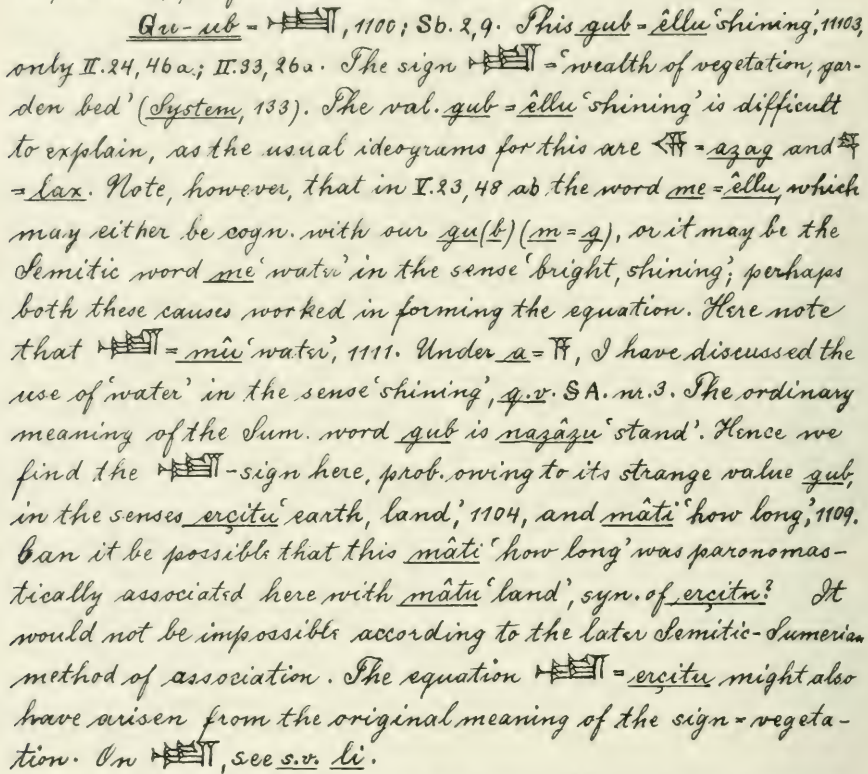 Gu-ub = 𒇷, 1100; Sb. 2, 9. This gub = êllu ‘shining’, 11103,
only II. 24, 46a.; II. 33, 26a. The sign 𒇷 = ‘wealth of vegetation, gar-
den bed’ (System, 133). The val. gub = êllu ‘shining’ is difficult
to explain, as the usual ideograms for this are 𒆬 = azag and
= lax. Note, however, that in V. 23, 48 ab the word me = êllu, which
may either be cogn. with our gu(b) (m = g), or it may be the
Semitic word me ‘water’ in the sense ‘bright, shining’; perhaps
both these causes worked in forming the equation. Here note
that 𒇷 = mû ‘water’, 1111. Under a = 𒀀, I have discussed the
use of ‘water’ in the sense ‘shining’, q.v. SA. nr. 3. The ordinary
meaning of the Sum. word gub is nazâzu ‘stand’. Hence we
find the 𒇷-sign here, prob. owing to its strange value gub,
in the senses erçitu ‘earth, land,’ 1104, and mâti ‘how long’, 1109.
Can it be possible that this mâti ‘how long’ was paronomas-
tically associated here with mâtu ‘land’, syn. of erçitu? It
would not be impossible according to the later Semitic-Sumerian
method of association. The equation 𒇷 = erçitu might also
have arisen from the original meaning of the sign = vegeta-
tion. On 𒇷, see s.v. li.